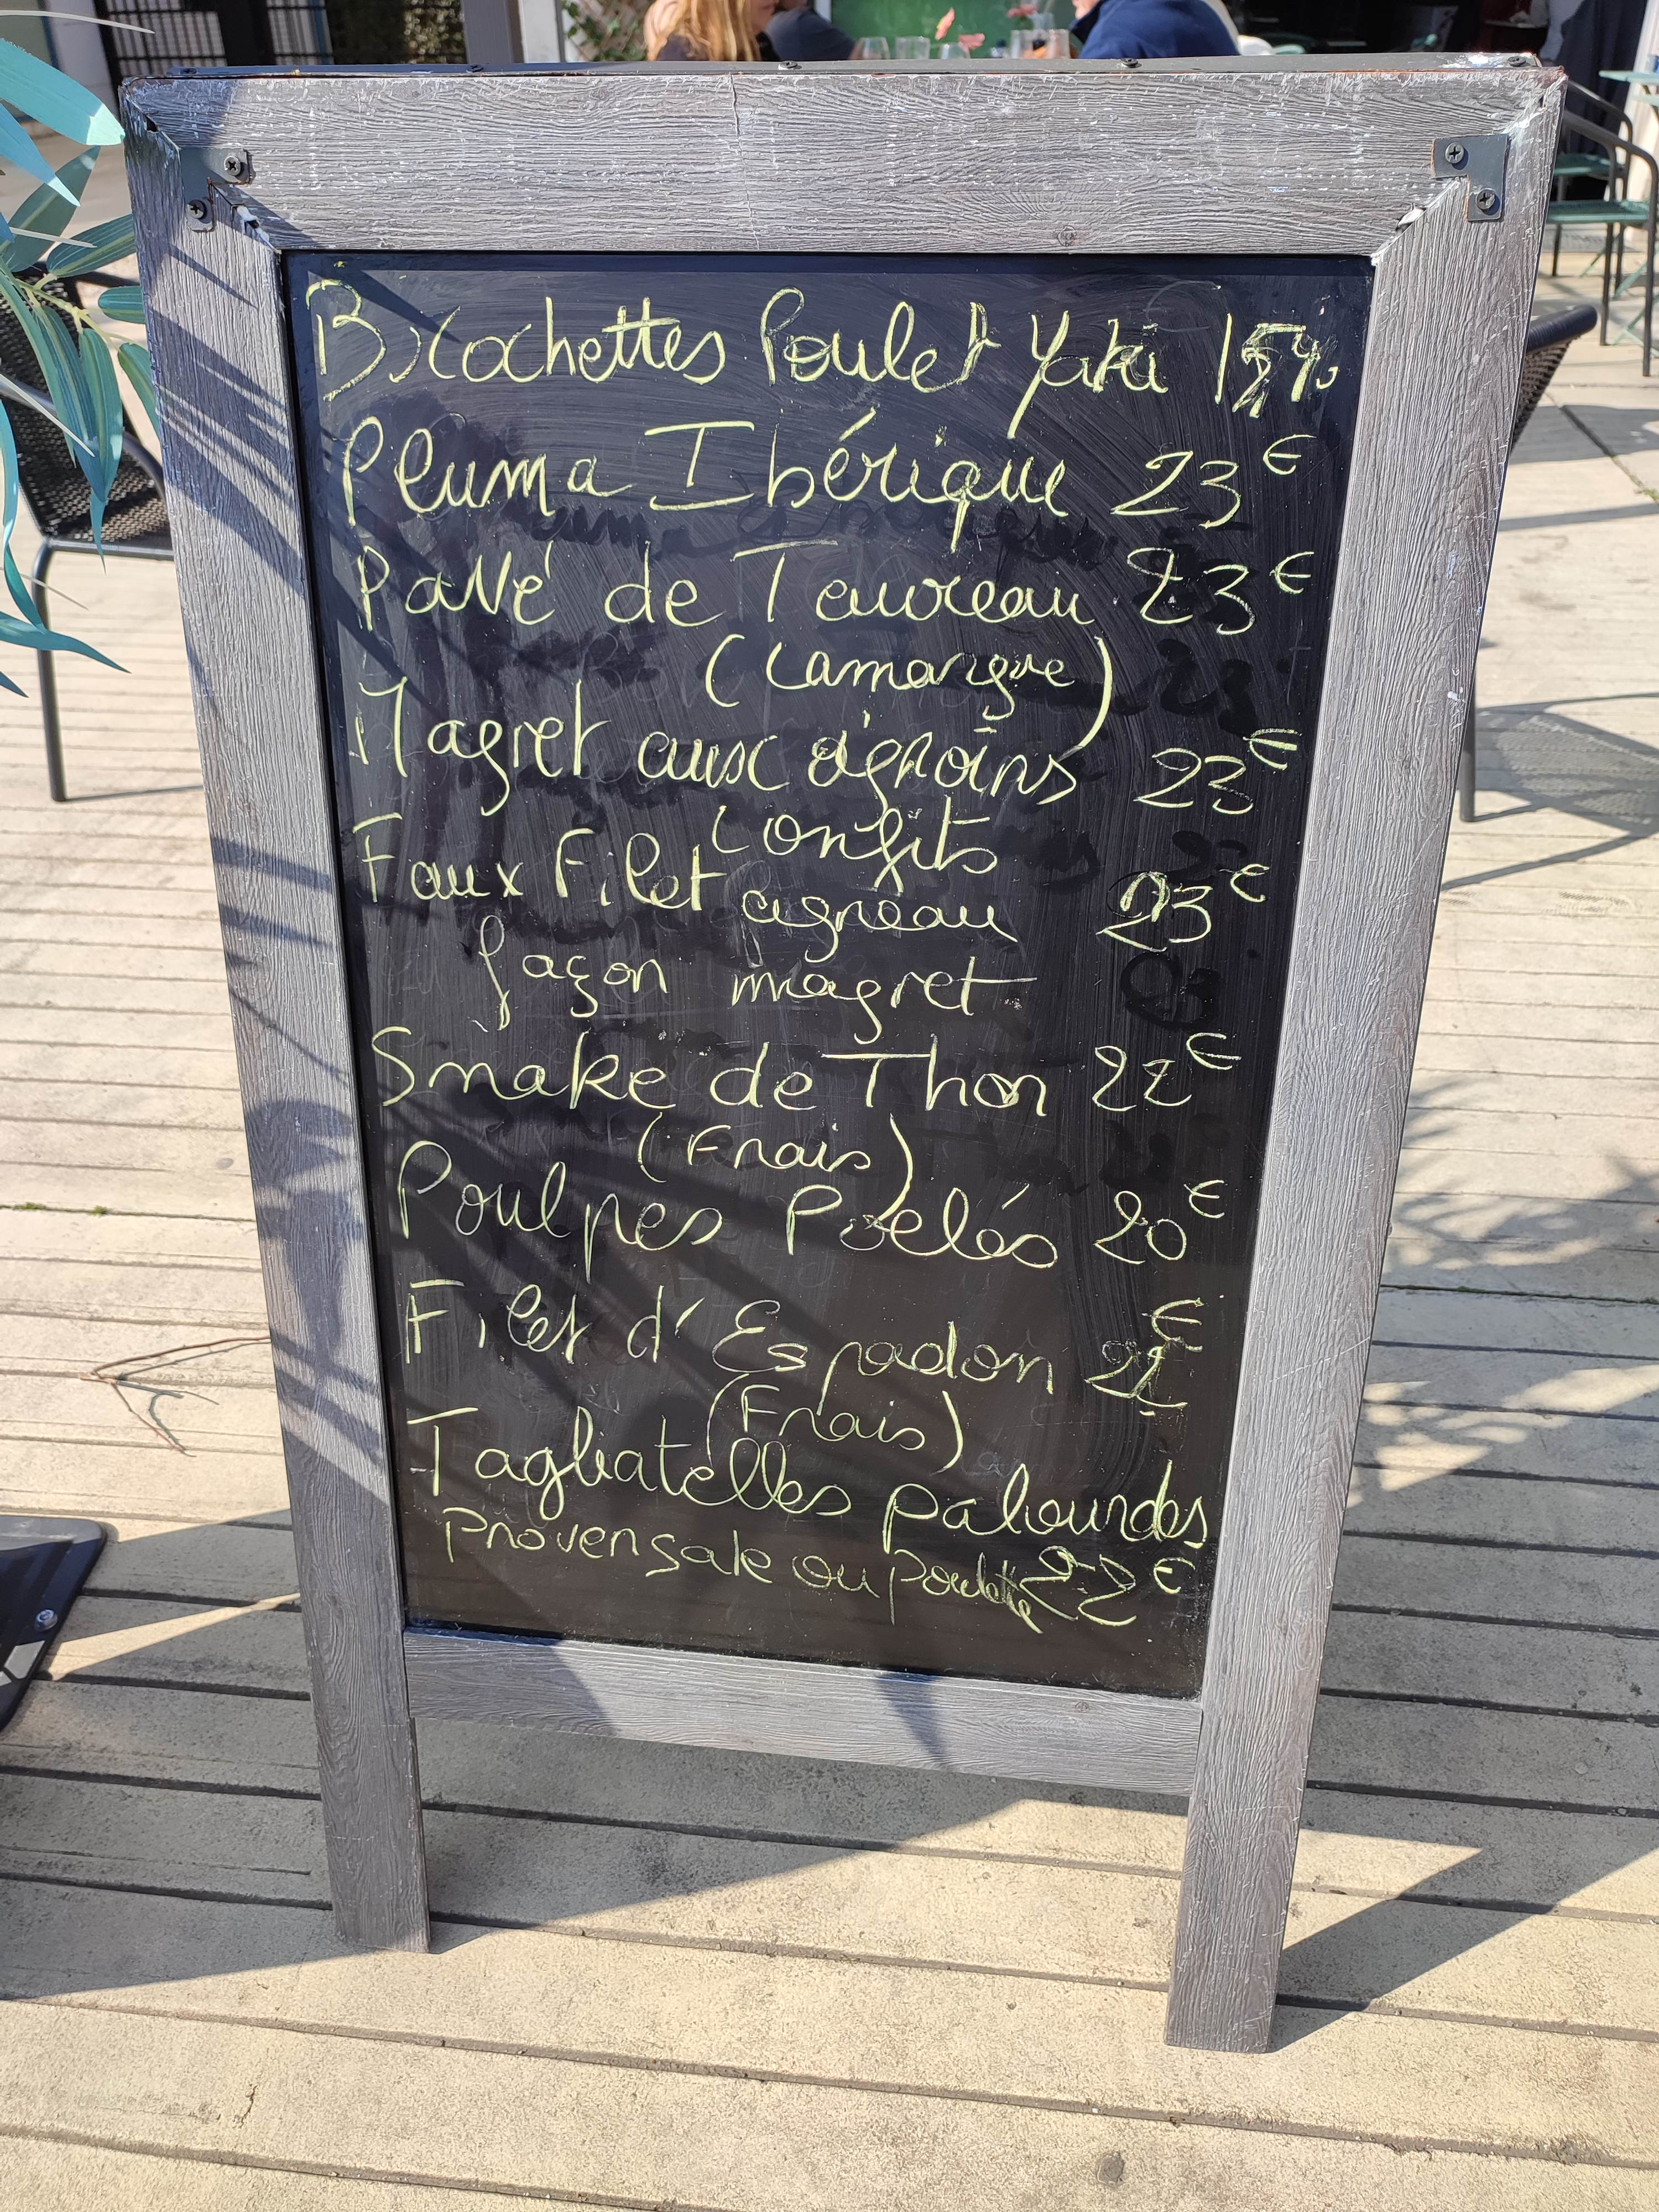 Brochettes Poulet Yaki
Pluma Ibérique 23€
Pavé de Taureau 23€
(Camargue)
Magret aux oignoins 23€
Confits
Faux Filet agneau 23€
façon magret
Smake de Thon 22€
(Frais)
Poulpes Poelés 20€
Filet d'Espadon €
(Frais)
Tagliatelles palourdes
Provensale ou poulette 22€